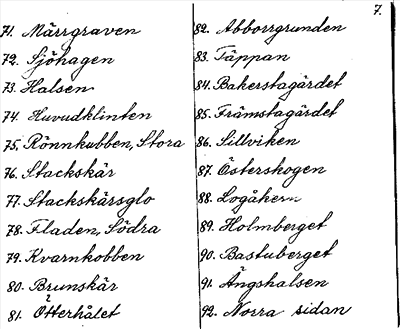 7.
71. Märrgraven
72. Sjöhagen
73. Halsen
74. Huvudklinten
75. Rönnkubben, Stora
76. Stackskär
77. Stackskärsglo
78. Fladen, Södra
79. Kvarnkobben
80. Brunskär
81. Otterhålet
82. Abborrgrunden
83. Täppan
84. Bakerstagärdet
85. Främstagärdet
86. Sillviken
87. Österskogen
88. Logåkern
89. Holmberget
90. Bastuberget
91. Ängshalsen
92. Norra sidan